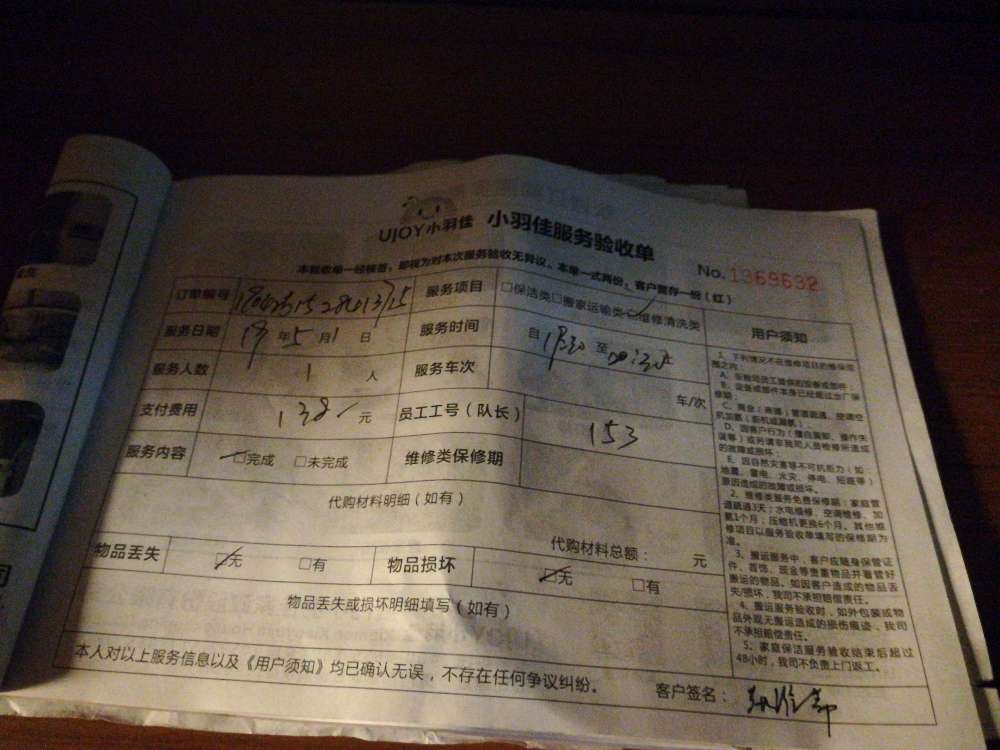 UJOY小羽佳 小羽佳服务验收单
No. 1969632
本验收单一经签署，即视为对本次服务验收无异议。本单一式两份，客户留存一份（红）
订单编号
服务项目 □保洁类□搬家运输类☑维修清洗类
用户须知
服务日期 19年5月1日
服务时间 自 至
服务人数 1 人
服务车次 车/次
支付费用 138 元
员工工号（队长） 153
服务内容 ☑完成 □未完成
维修类保修期
代购材料明细（如有）
代购材料总额： 元
物品丢失 ☑无 □有
物品损坏 ☑无 □有
物品丢失或损坏明细填写（如有）
本人对以上服务信息以及《用户须知》均已确认无误，不存在任何争议纠纷。
客户签名：
1、下列情况不在维修项目的维保范
围之内：
C、商业（商铺）管道疏通、空调空
机加氨（新机或漏氨）.
D、因客户行为（擅自装卸、操作失
误等）或另请非我司人员检修所造成
的故障或损坏；
E、因自然灾害等不可抗拒力（如：
地震、雷电、火灾、停电、短路等）
原因造成的故障或损坏。
2、维修类服务免费保修期：家庭管
道疏通3天；水电维修、空调维修、加
氨1个月；压缩机更换6个月。其他维
修项目以服务验收单填写的保修期为
准。
3、搬运服务中，客户应随身保管证
件、首饰、现金等贵重物品并看管好
搬运的物品，如因客户造成的物品丢
失/损坏，我司不承担赔偿责任。
4、搬运服务验收时，如外包装或物
品外观无搬运造成的损伤痕迹，我司
不承担赔偿责任。
5、家庭保洁服务验收结束后超过
48小时，我司不负责上门返工。